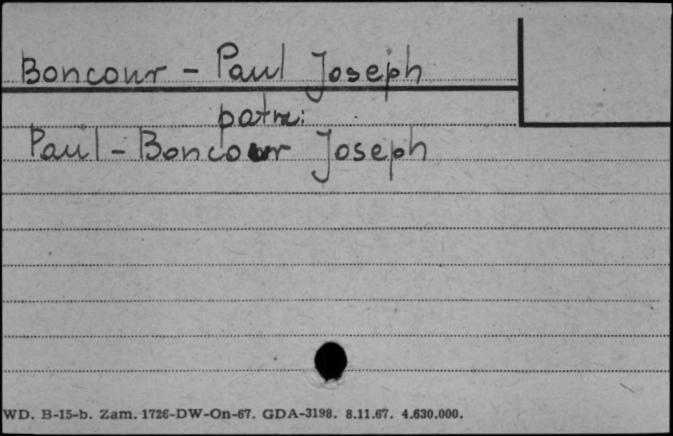 Boncour - Paul Joseph
patrz:
Paul - Boncour Joseph
WD. B-15-b. Zam. 1726-DW-On-67. GDA-3198. 8.11.67. 4.630.000.